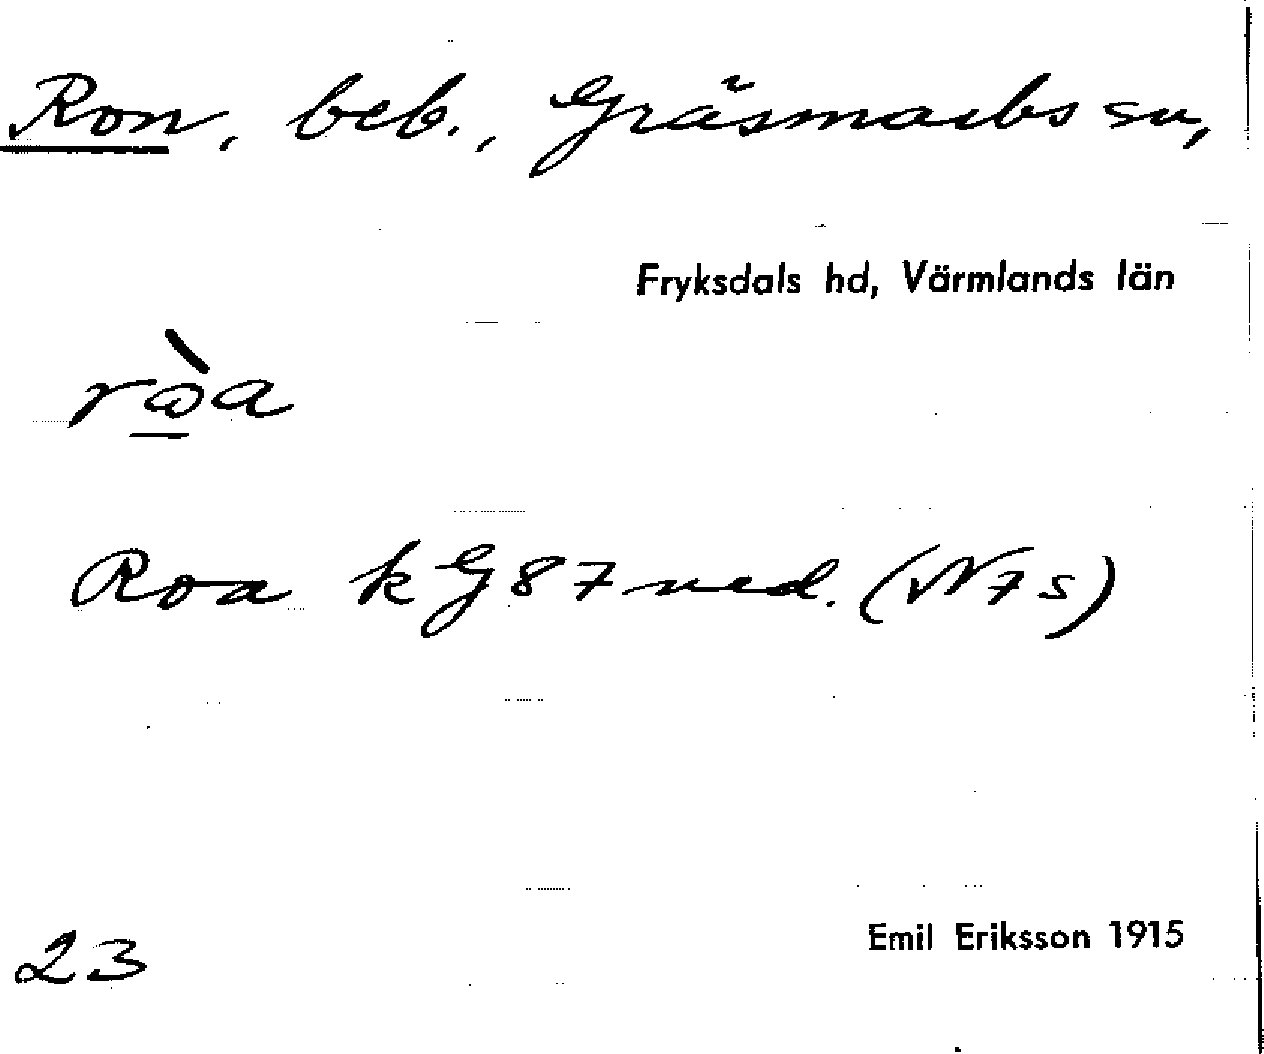 Ron, beb., Gräsmarks sn,
Fryksdals hd, Värmlands län
rὼ̱a
Roa k G 87 ned. (N 7 s)
23
Emil Eriksson 1915